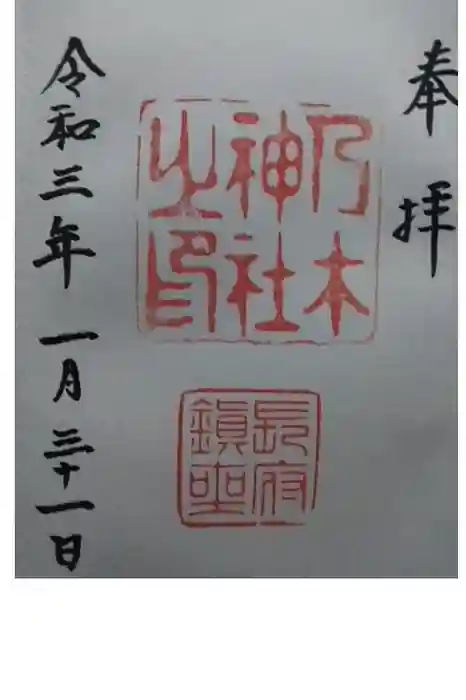 奉拝
乃木
神社
之印
長府
鎮坐
令和三年 一月 三十一日